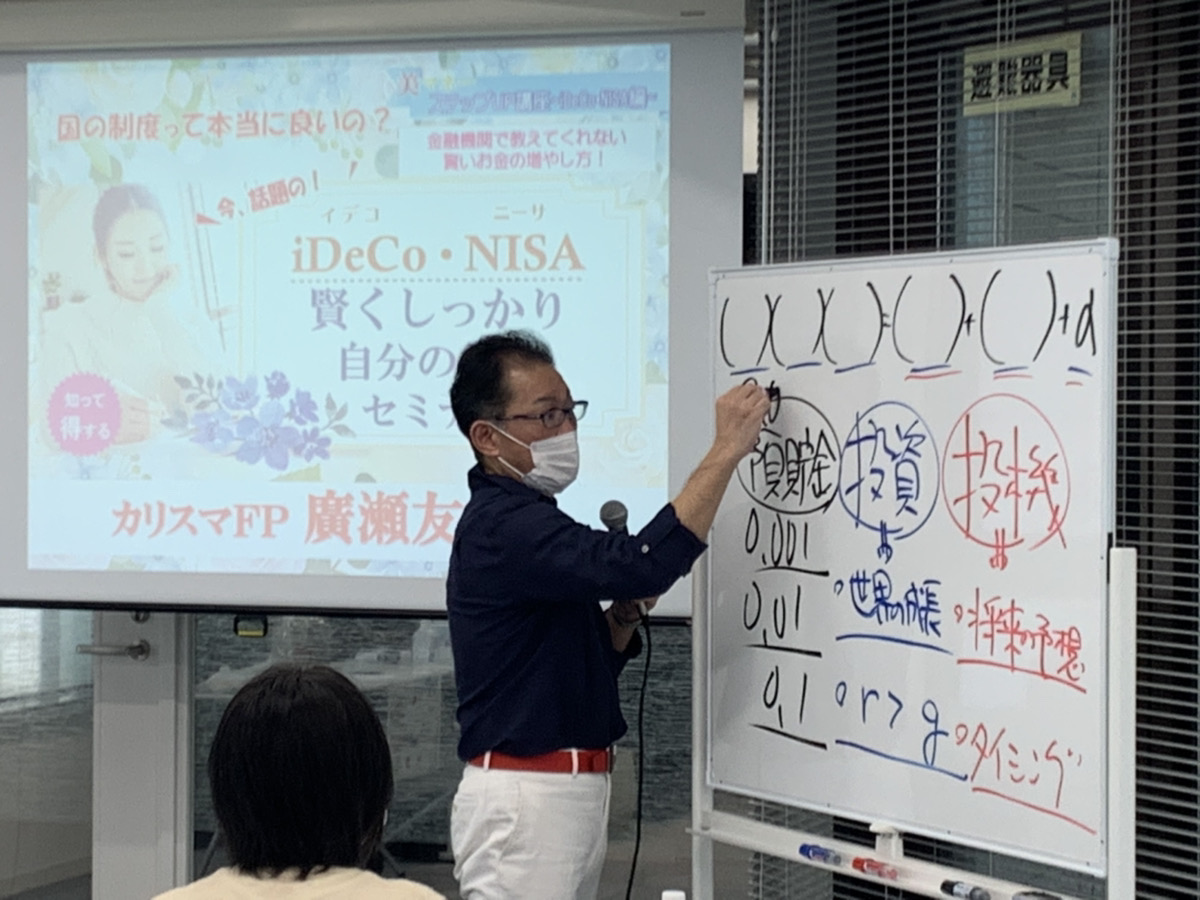 国の制度って本当に良いの？
ステップUP講座~iDeCo・NISA編~
金融機関で教えてくれない
賢いお金の増やし方！
今、話題の！
イデコ ニーサ
iDeCo・NISA
賢くしっかり
自分の
セミナ
知って
得する
カリスマFP 廣瀬友
避難器具
( )( )( )=( )+( )+α
預貯金 投資 投機
0.001
0.01
0.1
世界の成長
r>g
将来の予想
タイミング